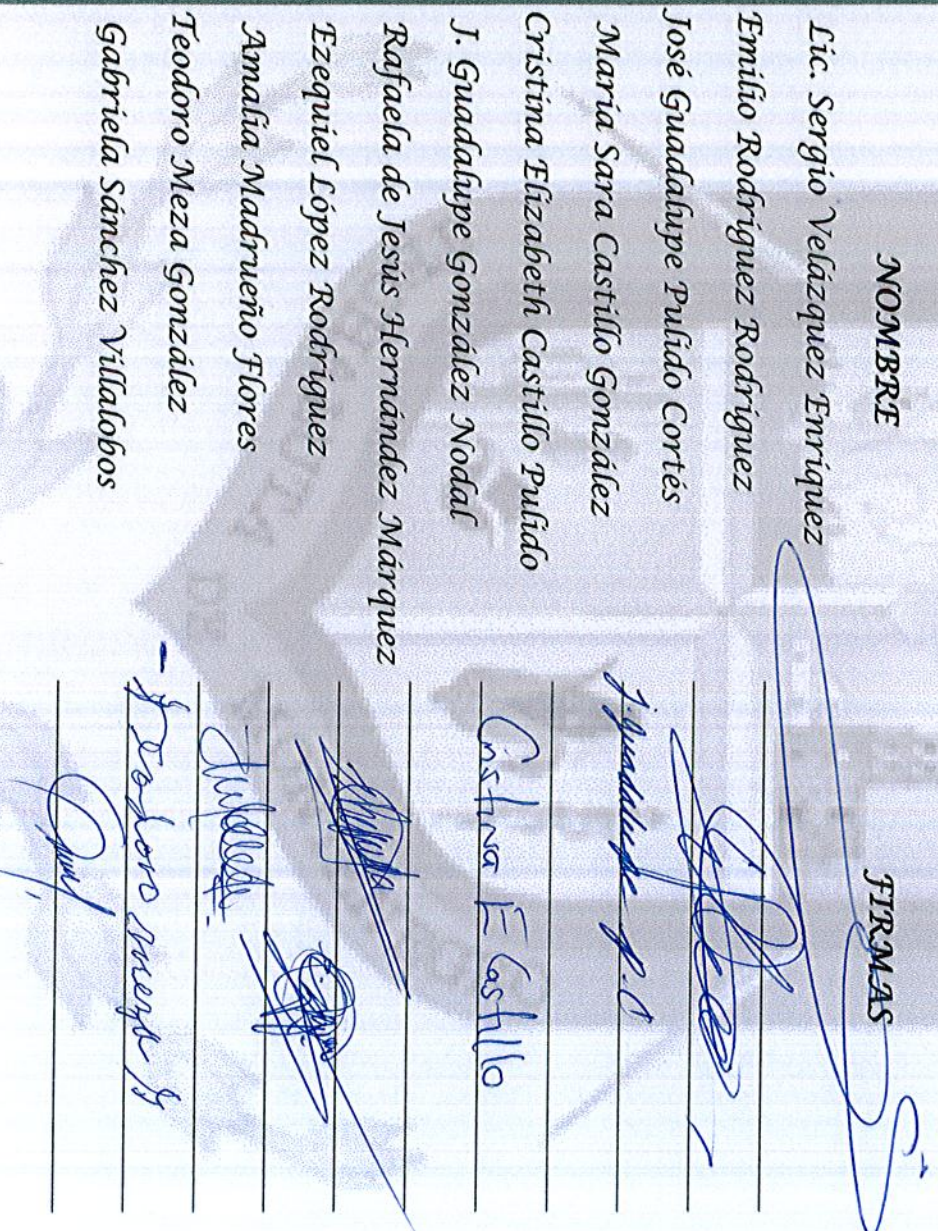 NOMBRE FIRMAS
Lic. Sergio Velázquez Enríquez
Emilio Rodríguez Rodríguez
José Guadalupe Pulido Cortés
María Sara Castillo González
Cristina Elizabeth Castillo Pulido
J. Guadalupe González Nodal
Rafaela de Jesús Hernández Márquez
Ezequiel López Rodríguez
Amalia Madrueño Flores
Teodoro Meza González
Gabriela Sánchez Villalobos
Cristina E Castillo